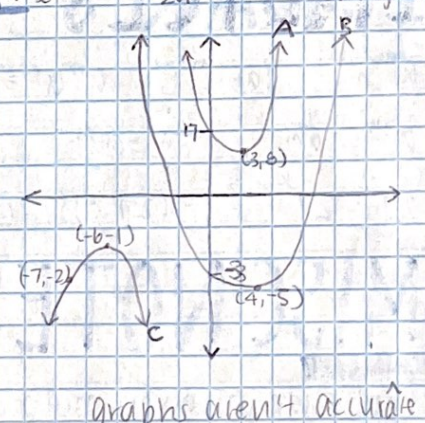 A B
17
(3,8)
(-6-1)
(-7,-2)
-3
(4,-5)
C
graphs aren't accurate